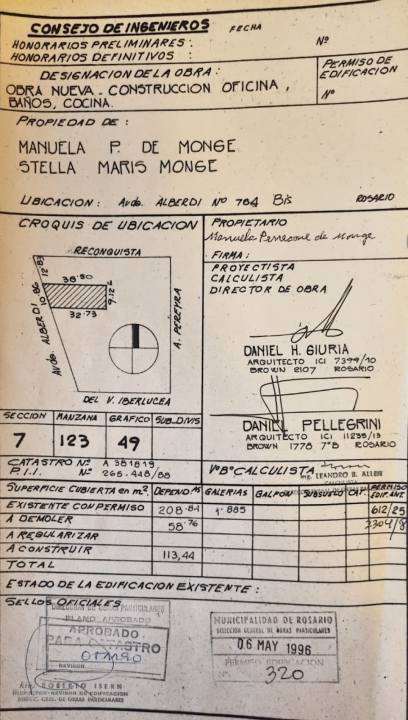 CONSEJO DE INGENIEROS FECHA
HONORARIOS PRELIMINARES : Nº
HONORARIOS DEFINITIVOS :
DESIGNACION DE LA OBRA : PERMISO DE EDIFICACION
OBRA NUEVA - CONSTRUCCION OFICINA , Nº
BAÑOS, COCINA.
PROPIEDAD DE :
MANUELA P. DE MONGE
STELLA MARIS MONGE
UBICACION : Avda. ALBERDI Nº 764 Bis ROSARIO
CROQUIS DE UBICACION
RECONQUISTA
12.83
38.50
10.86
9.12
32.73
Avda. ALBERDI
A. PEREYRA
DEL V. IBERLUCEA
PROPIETARIO
Manuela de Monge
FIRMA :
PROYECTISTA
CALCULISTA
DIRECTOR DE OBRA
DANIEL H. GIURIA
ARQUITECTO ICI 7399/10
BROWN 2107 ROSARIO
DANIEL PELLEGRINI
ARQUITECTO ICI 11235/13
BROWN 1778 7ºB ROSARIO
SECCION MANZANA GRAFICO SUB_DIVIS
7 123 49
CATASTRO Nº A 381819
P.I.I. Nº 265.448/88
VºBº CALCULISTA
Ing. LEANDRO B.
SUPERFICIE CUBIERTA en m². DEPEND.AS GALERIAS GALPON SUBSUELO CAT. PERMISO EDIF. ANT.
EXISTENTE CON PERMISO 208.84 1.885 612/25
A DEMOLER 58.76 2304/8
A REGULARIZAR
A CONSTRUIR 113,44
TOTAL
ESTADO DE LA EDIFICACION EXISTENTE :
SELLOS OFICIALES
DIRECCION DE OBRAS PARTICULARES
PLANO APROBADO
APROBADO
PARA CATASTRO
REVISOR
Arq. ROBERTO ISERN
INSPECTOR - REVISOR DE EDIFICACION
DIRECC. GRAL. DE OBRAS PARTICULARES
MUNICIPALIDAD DE ROSARIO
DIRECCION GENERAL DE OBRAS PARTICULARES
06 MAY 1996
PERMISO EDIFICACION
Nº 320